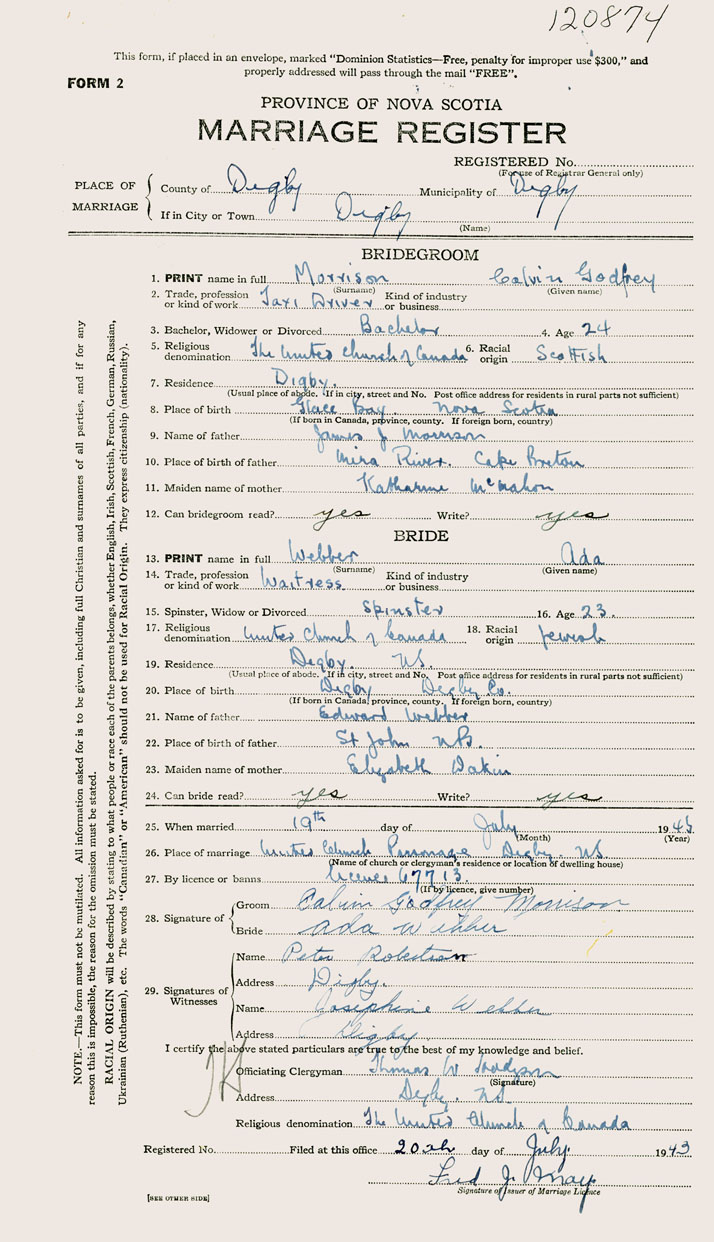 120874
This form, if placed in an envelope, marked "Dominion Statistics—Free, penalty for improper use $300," and
properly addressed will pass through the mail "FREE".
FORM 2
PROVINCE OF NOVA SCOTIA
MARRIAGE REGISTER
REGISTERED No.
(For use of Registrar General only)
PLACE OF MARRIAGE
County of Digby Municipality of Digby
If in City or Town Digby
(Name)
BRIDEGROOM
1. PRINT name in full Morrison Calvin Godfrey
(Surname) (Given name)
2. Trade, profession or kind of work Taxi Driver Kind of industry or business
3. Bachelor, Widower or Divorced Bachelor 4. Age 24
5. Religious denomination The United Church of Canada 6. Racial origin Scottish
7. Residence Digby.
(Usual place of abode. If in city, street and No. Post office address for residents in rural parts not sufficient)
8. Place of birth Glace Bay Nova Scotia
(If born in Canada, province, county. If foreign born, country)
9. Name of father James J Morrison
10. Place of birth of father Mira River. Cape Breton
11. Maiden name of mother Katharine McMahon
12. Can bridegroom read? yes Write? yes
BRIDE
13. PRINT name in full Webber Ada
(Surname) (Given name)
14. Trade, profession or kind of work Waitress Kind of industry or business
15. Spinster, Widow or Divorced Spinster 16. Age 23.
17. Religious denomination United Church of Canada 18. Racial origin Jewish
19. Residence Digby. N.S.
(Usual place of abode. If in city, street and No. Post office address for residents in rural parts not sufficient)
20. Place of birth Digby Digby Co.
(If born in Canada province, county. If foreign born, country)
21. Name of father Edward Webber
22. Place of birth of father St John N.B.
23. Maiden name of mother Elizabeth Dakin
24. Can bride read? yes Write? yes
25. When married 19th day of July 19
(Month) (Year)
26. Place of marriage United Church Parsonage Digby. N.S.
(Name of church or clergyman's residence or location of dwelling house)
27. By licence or banns licence 67713.
(If by licence, give number)
28. Signature of
Groom Calvin Godfrey Morrison
Bride Ada Webber
29. Signatures of Witnesses
Name Peter Robertson
Address Digby.
Name Josephine Webber
Address Digby
I certify the above stated particulars are true to the best of my knowledge and belief.
Officiating Clergyman Thomas W
(Signature)
Address Digby. N.S.
Religious denomination The United Church of Canada
Registered No. Filed at this office 20th day of July 1943
Fred J. May
Signature of Issuer of Marriage Licence
[SEE OTHER SIDE]
NOTE.—This form must not be mutilated. All information asked for is to be given, including full Christian and surnames of all parties, and if for any
reason this is impossible, the reason for the omission must be stated.
RACIAL ORIGIN will be described by stating to what people or race each of the parents belongs, whether English, Irish, Scottish, French, German, Russian,
Ukrainian (Ruthenian), etc. The words "Canadian" or "American" should not be used for Racial Origin. They express citizenship (nationality).